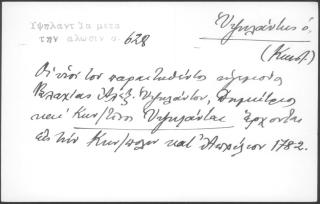 Ὑψηλαντ Τα μετα
την αλωσιν σ. 628
Ὑψηλάντης ὁ,
(Κωστ.)
Οἱ υἱοὶ τοῦ παραιτηθέντος ἡγεμόνος
Βλαχίας Ἀλεξ. Ὑψηλάντου, Δημήτριος
καὶ Κων/τῖνος Ὑψηλάνται ἔρχονται
εἰς τὴν Κων/πολιν κατ' Ἀπρίλιον 1782.